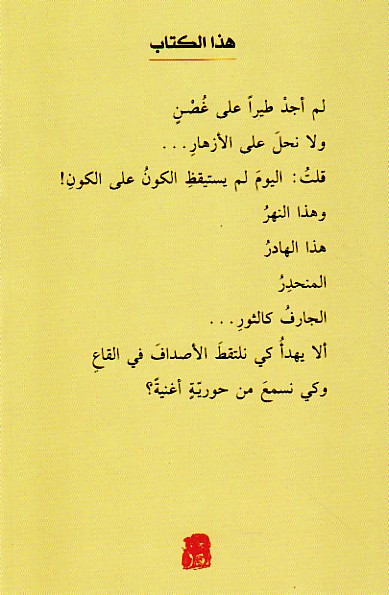 هذا الكتاب
لم أجدْ طيراً على غُصْنٍ
ولا نحلَ على الأزهارِ...
قلتُ: اليومَ لم يستيقظِ الكونُ على الكونِ!
وهذا النهرُ
هذا الهادرُ
المنحدِرُ
الجارفُ كالثورِ...
ألا يهدأُ كي نلتقطَ الأصدافَ في القاعِ
وكي نسمعَ من حوريّةٍ أغنيةً؟